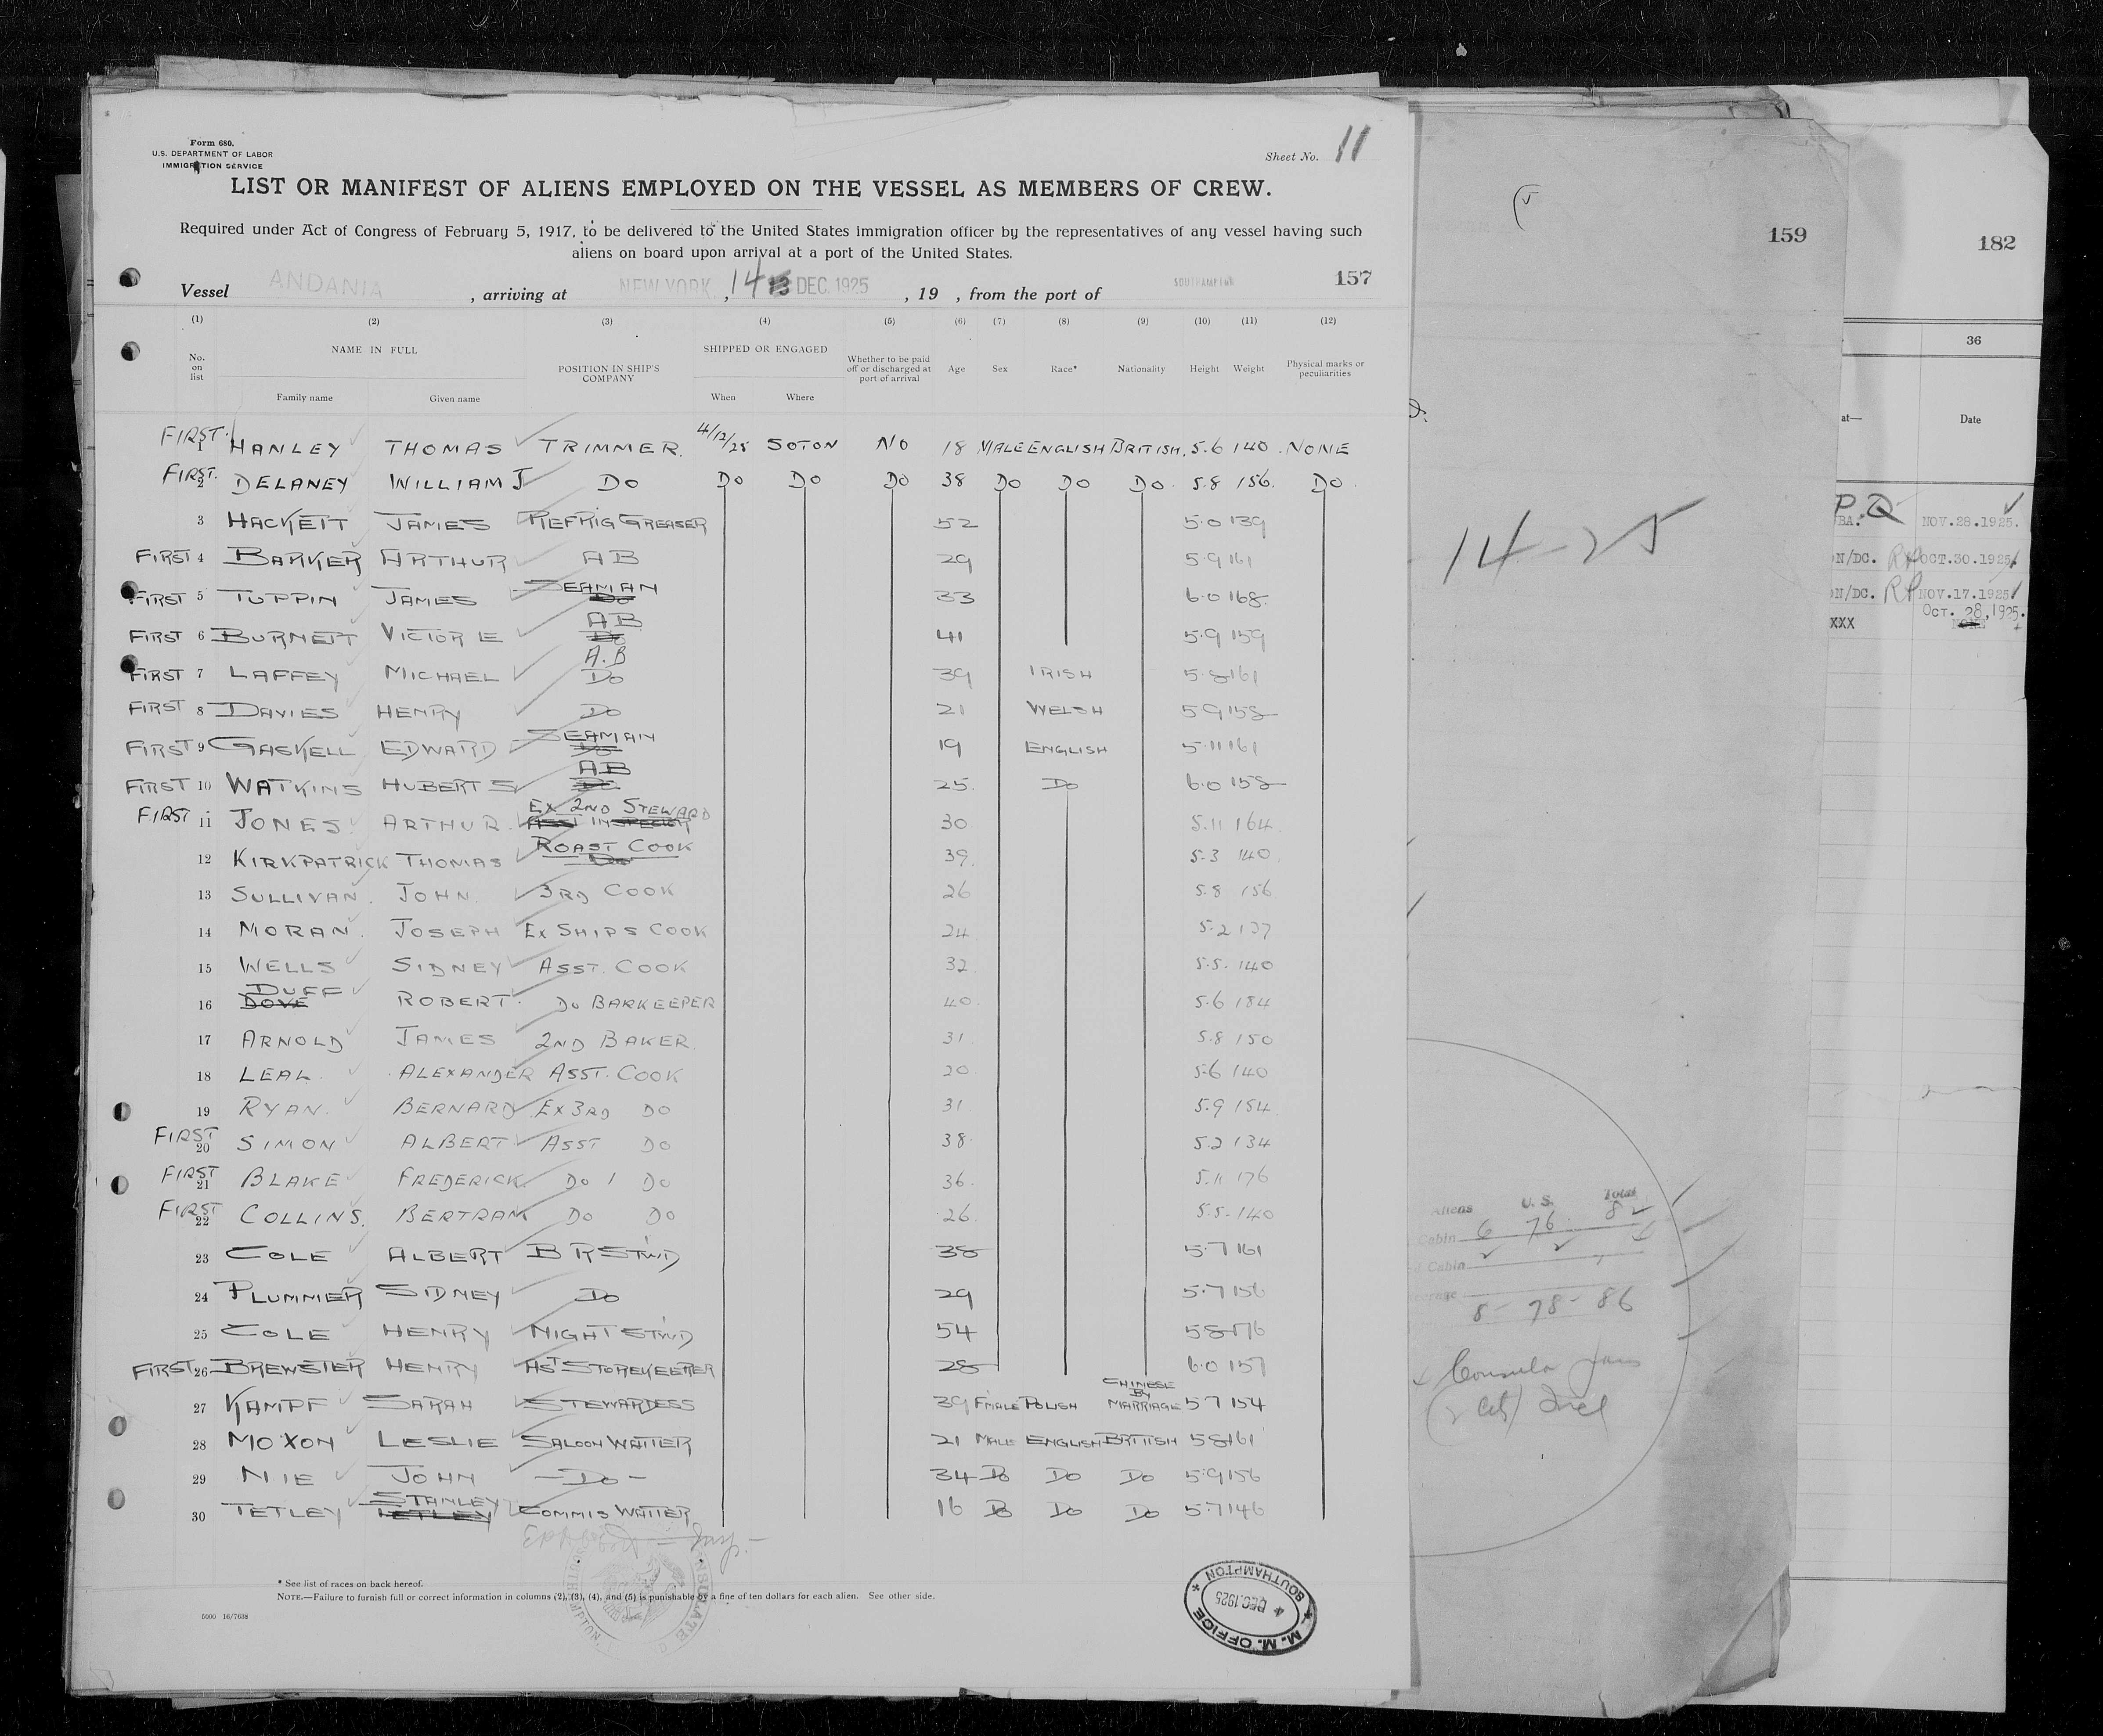 Form 680.
U.S. DEPARTMENT OF LABOR
IMMIGRATION SERVICE
Sheet No. 11
LIST OR MANIFEST OF ALIENS EMPLOYED ON THE VESSEL AS MEMBERS OF CREW.
Required under Act of Congress of February 5, 1917, to be delivered to the United States immigration officer by the representatives of any vessel having such
aliens on board upon arrival at a port of the United States.
Vessel ANDANIA , arriving at NEW YORK , 14 DEC. 1925 , 19 , from the port of SOUTHAMPTON 157
(1) (2) (3) (4) (5) (6) (7) (8) (9) (10) (11) (12)
No. on list NAME IN FULL Family name Given name POSITION IN SHIP'S COMPANY SHIPPED OR ENGAGED When Where Whether to be paid off or discharged at port of arrival Age Sex Race* Nationality Height Weight Physical marks or peculiarities
FIRST 1 HANLEY THOMAS TRIMMER. 4/12/25 SOTON NO 18 MALE ENGLISH BRITISH. 5.6 140 NONE
FIRST. 2 DELANEY WILLIAM J DO DO DO DO 38 DO DO DO 5.8 156. DO
3 HACKETT JAMES REFRIG GREASER 52 5.0 139
FIRST 4 BARKER ARTHUR AB 29 5.9 161
FIRST 5 TUPPIN JAMES SEAMAN DO 33 6.0 168
FIRST 6 BURNETT VICTOR E AB DO 41 5.9 159
FIRST 7 LAFFEY MICHAEL A.B DO 39 IRISH 5.8 161
FIRST 8 DAVIES HENRY DO 21 WELSH 5.9 158
FIRST 9 GASKELL EDWARD SEAMAN DO 19 ENGLISH 5.11 161
FIRST 10 WATKINS HUBERT S AB DO 25. DO 6.0 158
FIRST 11 JONES ARTHUR. EX 2ND STEWARD ASST INSPECTOR 30 5.11 164
12 KIRKPATRICK THOMAS ROAST COOK DO 39. 5.3 140
13 SULLIVAN. JOHN. 3RD COOK 26 5.8 156
14 MORAN. JOSEPH EX SHIPS COOK 24 5.2 137
15 WELLS SIDNEY ASST. COOK 32 5.5. 140
16 DUFF DOVE ROBERT. DO BARKEEPER 40. 5.6 184
17 ARNOLD JAMES 2ND BAKER. 31 5.8 150
18 LEAL ALEXANDER ASST. COOK 20 5.6 140
19 RYAN. BERNARD EX 3RD DO 31 5.9 154
FIRST 20 SIMON ALBERT ASST DO 38. 5.2 134
FIRST 21 BLAKE FREDERICK. DO 1 DO 36. 5.11 176
FIRST 22 COLLINS. BERTRAM DO DO 26. 5.5. 140
23 COLE ALBERT B R STWD 38 5.7 161
24 PLUMMER SIDNEY DO 29 5.7 156
25 COLE HENRY NIGHT STWD 54 5.8 176
FIRST 26 BREWSTER HENRY AST STOREKEEPER 28 6.0 157
27 KAMPF SARAH STEWARDESS 39 FMALE POLISH CHINESE BY MARRIAGE 5 7 154
28 MOXON LESLIE SALOON WAITER 21 MALE ENGLISH BRITISH 5 8 161
29 NIE JOHN - DO - 34 DO DO DO 5.9 156
30 TETLEY STANLEY TETLEY COMMIS WAITER 16 DO DO DO 5.7 146
* See list of races on back hereof.
NOTE.—Failure to furnish full or correct information in columns (2), (3), (4), and (5) is punishable by a fine of ten dollars for each alien. See other side.
5000 16/7638
M. M. OFFICE
4 DEC. 1925
SOUTHAMPTON
159
14-25
Aliens U. S. Total
Cabin 6 76 82
Cabin 2 2
8 - 78 - 86
182
36
at— Date
P.Q
BA. NOV.28.1925.
N/DC. OCT.30.1925
N/DC. NOV.17.1925
Oct. 28, 1925.
XXX NONE